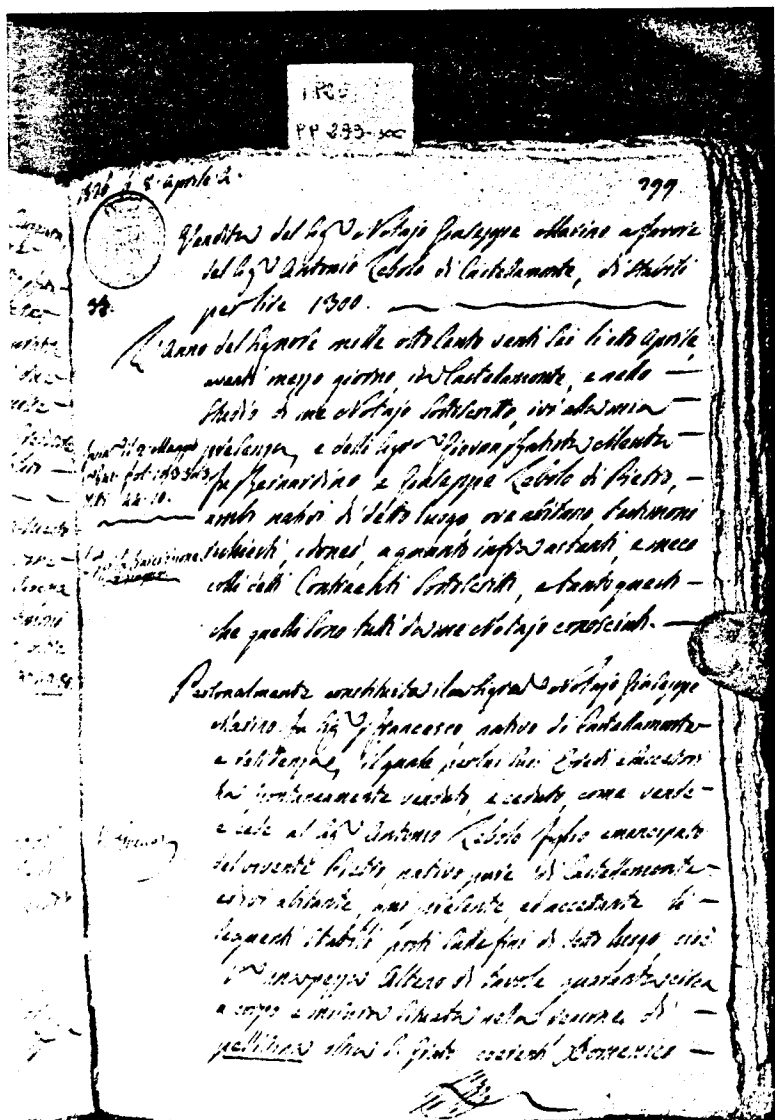 1P20
PP 299-300
1826 i 8. Aprile 2.
299
Vendita del Sigr Notajo Giuseppe Marino a favore
del Sigr Antonio Zebolo di Castellamonte, di stabili
per lire 1300.
L'anno del Signore mille otto cento venti sei li otto Aprile,
avanti mezzo giorno, in Castellamonte, e nello
studio di me Notajo sottoscritto, ivi alla mia
presenza, e delli Sigri Giovan Battista
fu Bernardino e Giuseppe Zebolo di Pietro,
ambi nativi di detto luogo, ove abitano testimoni
richiesti, idonei a quanto infra astanti, e meco
colli detti Contraenti sottoscritti, e tanto questi
che quelli sono tutti da me Notajo conosciuti.
Personalmente constituito il Signor Notajo Giuseppe
Marino fu Sigr Francesco nativo di Castellamonte
e residenza, il quale per lui suoi Eredi e successori
ha spontaneamente venduto, e ceduto, come vende
e cede al Sigr Antonio Zebolo figlio emancipato
del vivente Pietro nativo pure di Castellamonte
ed ivi abitante, qui presente, ed accettante li
seguenti stabili posti sulle fini di detto luogo cioè
1° una pezza Alteno di tavole quaranta
a corpo e misura situata nella regione di
pellitina coerenti Domenico